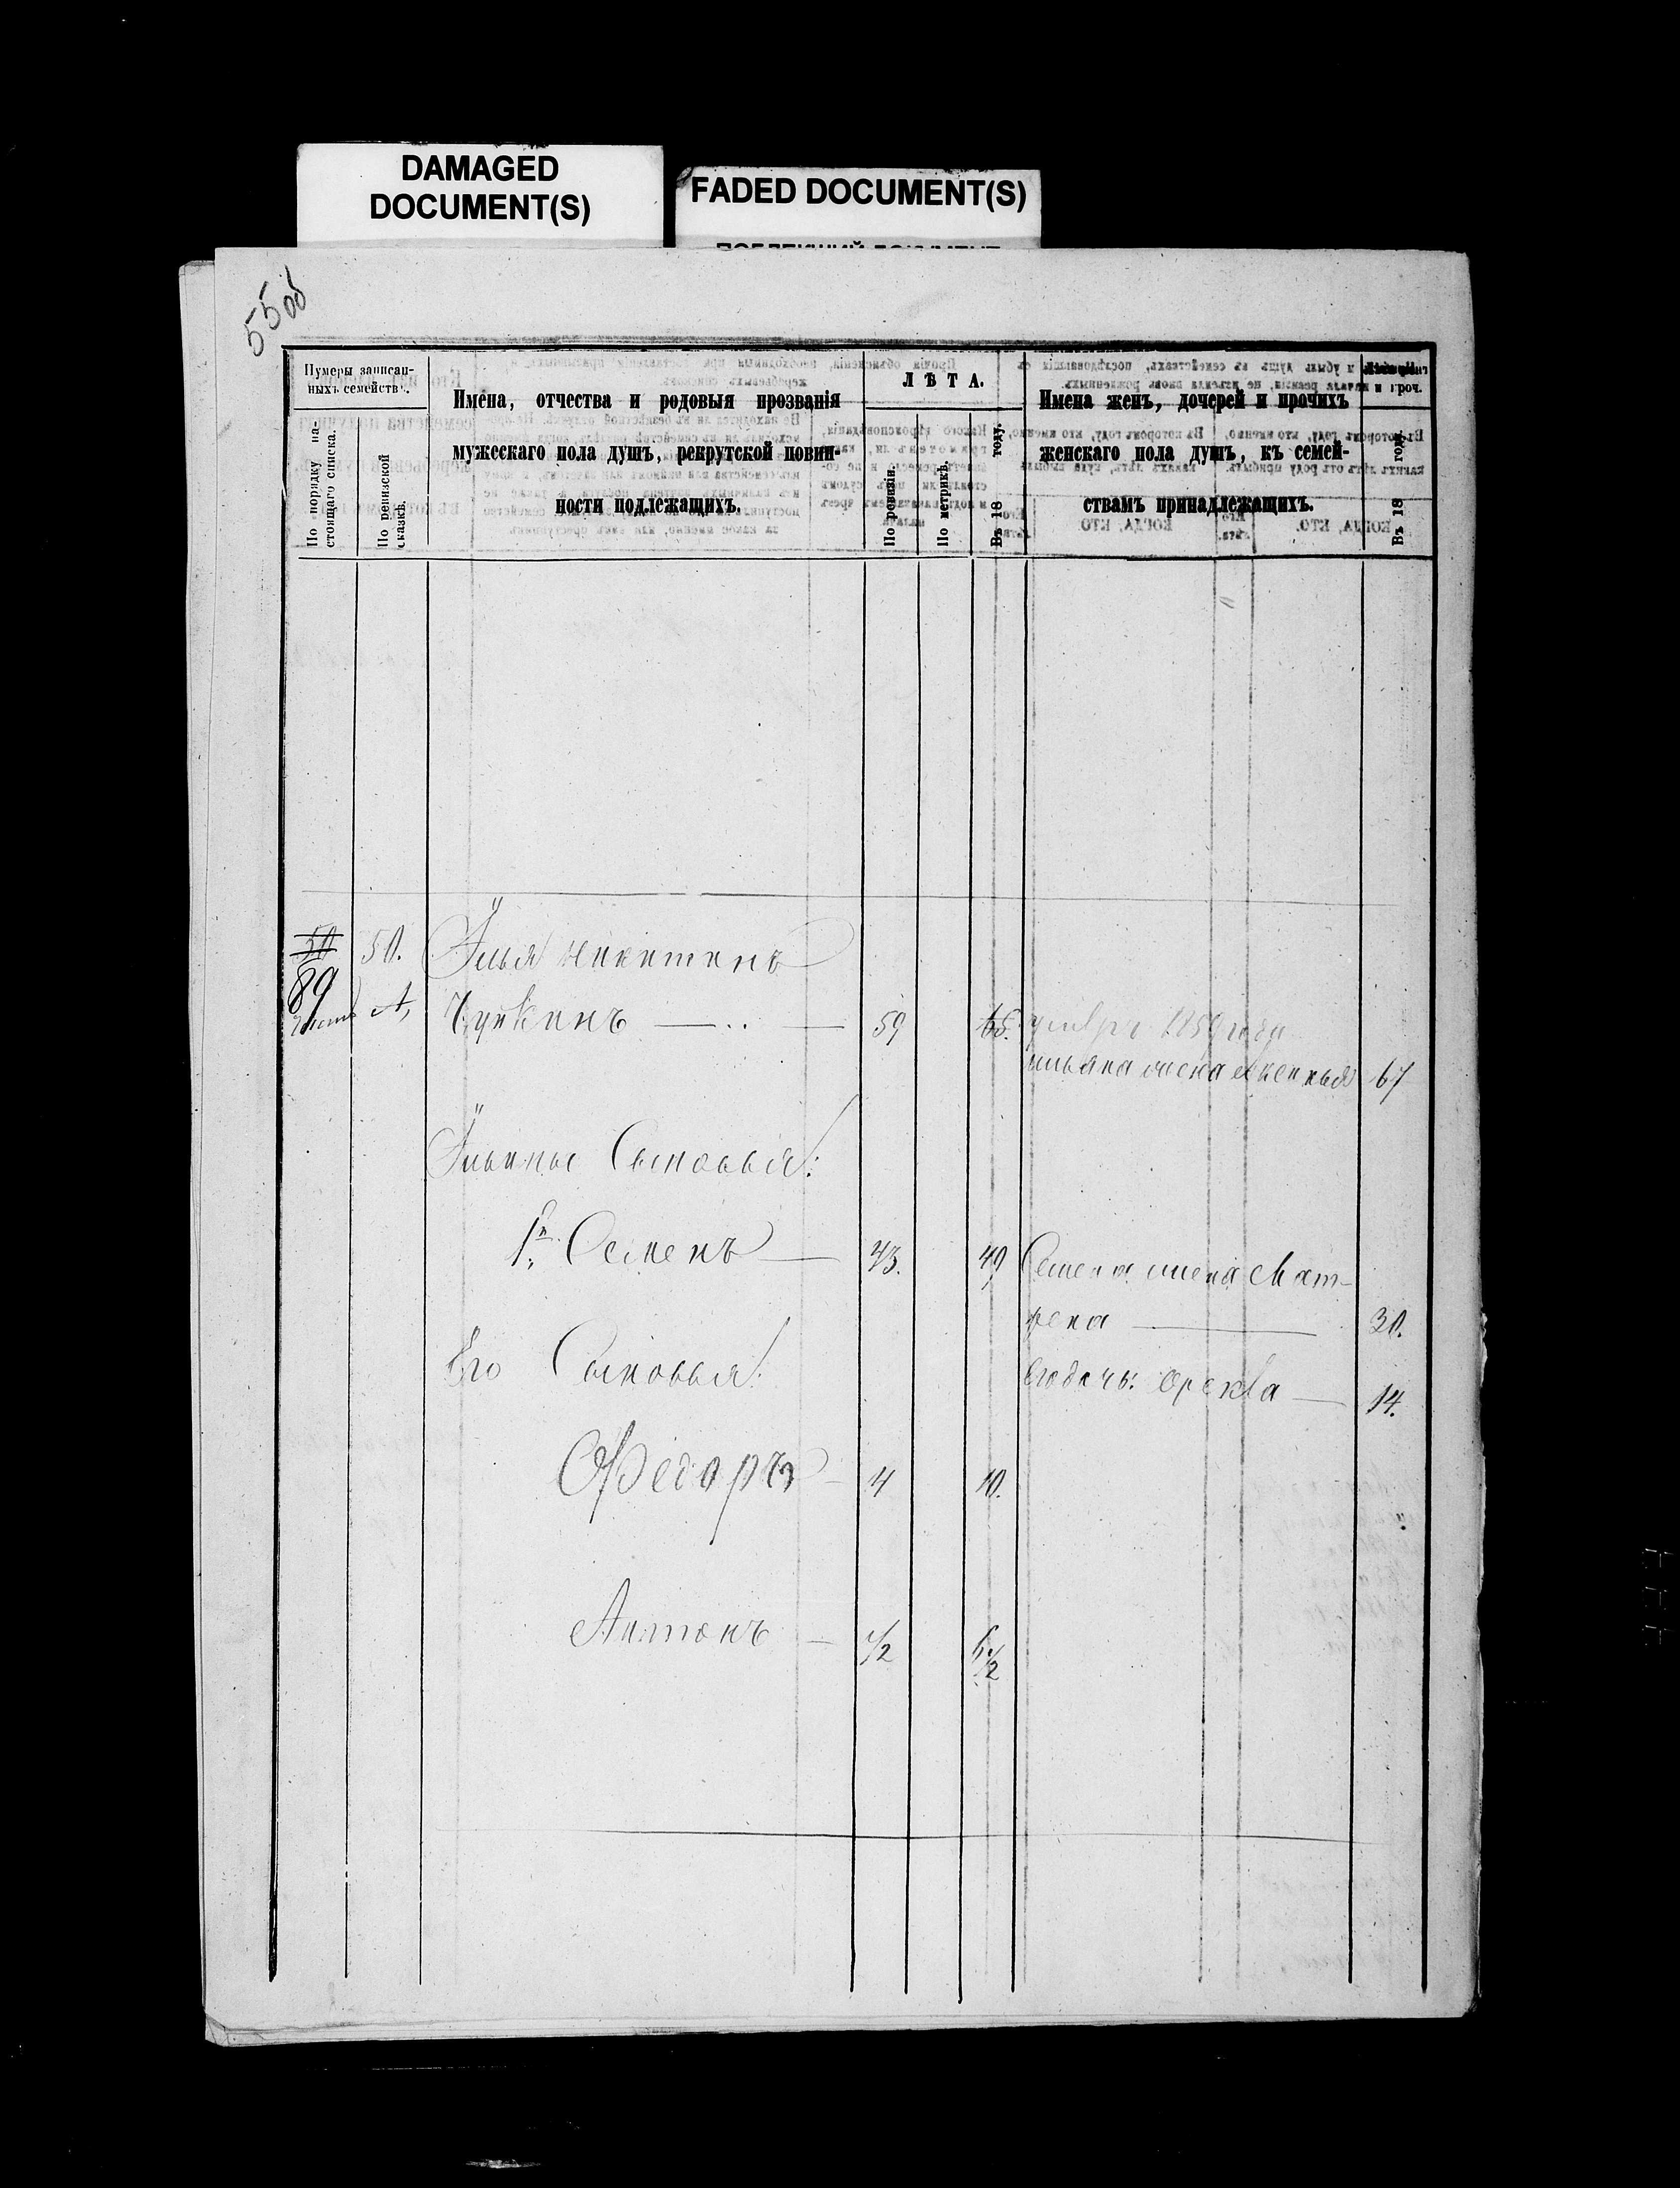 DAMAGED
DOCUMENT(S)
FADED DOCUMENT(S)
55 об
Нумеры записан-
ныхъ семействъ.
По порядку на-
стоящаго списка.
По ревизской
сказкѣ.
Имена, отчества и родовыя прозванія
мужескаго пола душъ, рекрутской повин-
ности подлежащихъ.
ЛѢТА.
По ревизіи.
По метрикѣ.
Въ 18 году.
Имена женъ, дочерей и прочихъ
женскаго пола душъ, къ семей-
ствамъ принадлежащихъ.
Въ 18 году.
50 50. Илья Никитинъ
89
Чуркинъ 59 65.
1859 года
Ильяна жена Аксинья 67
Ильины Сыновья:
1й Семенъ 43. 49
Семена жена Мат-
рена 30.
Его Сыновья:
его дочь: Фекла 14.
Федоръ 4 10.
Антонъ 1/2 6 1/2